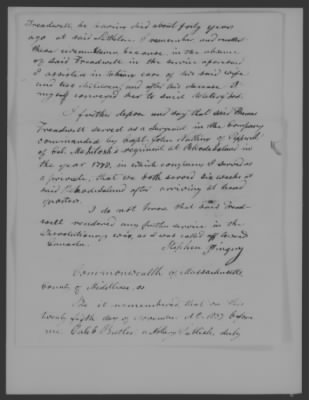 Treadwell he having died about forty years
ago at said Littleton. I remember and recollect
these circumstances because in the absence
of said Treadwell in the service aforesaid
I assisted in taking care of his said wife
and two children, and after his decease I
myself conveyed her to said
I further depose and say that said
Treadwell served as a Sergeant in the Company
commanded by Capt. John of
of Col. McIntosh's regiment at Rhode Island in
the year 1778, in which company I served as
a private, that we both served six weeks at
said Rhode Island after arriving at head
quarters.
I do not know that said Tread-
well rendered any further service in the
Revolutionary war, as I was called off to
Stephen
Commonwealth of Massachusetts
County of Middlesex, ss.
Be it remembered, that on this
twenty fifth day of November AD. 1837 before
me Caleb Butler, a Notary Publick, duly